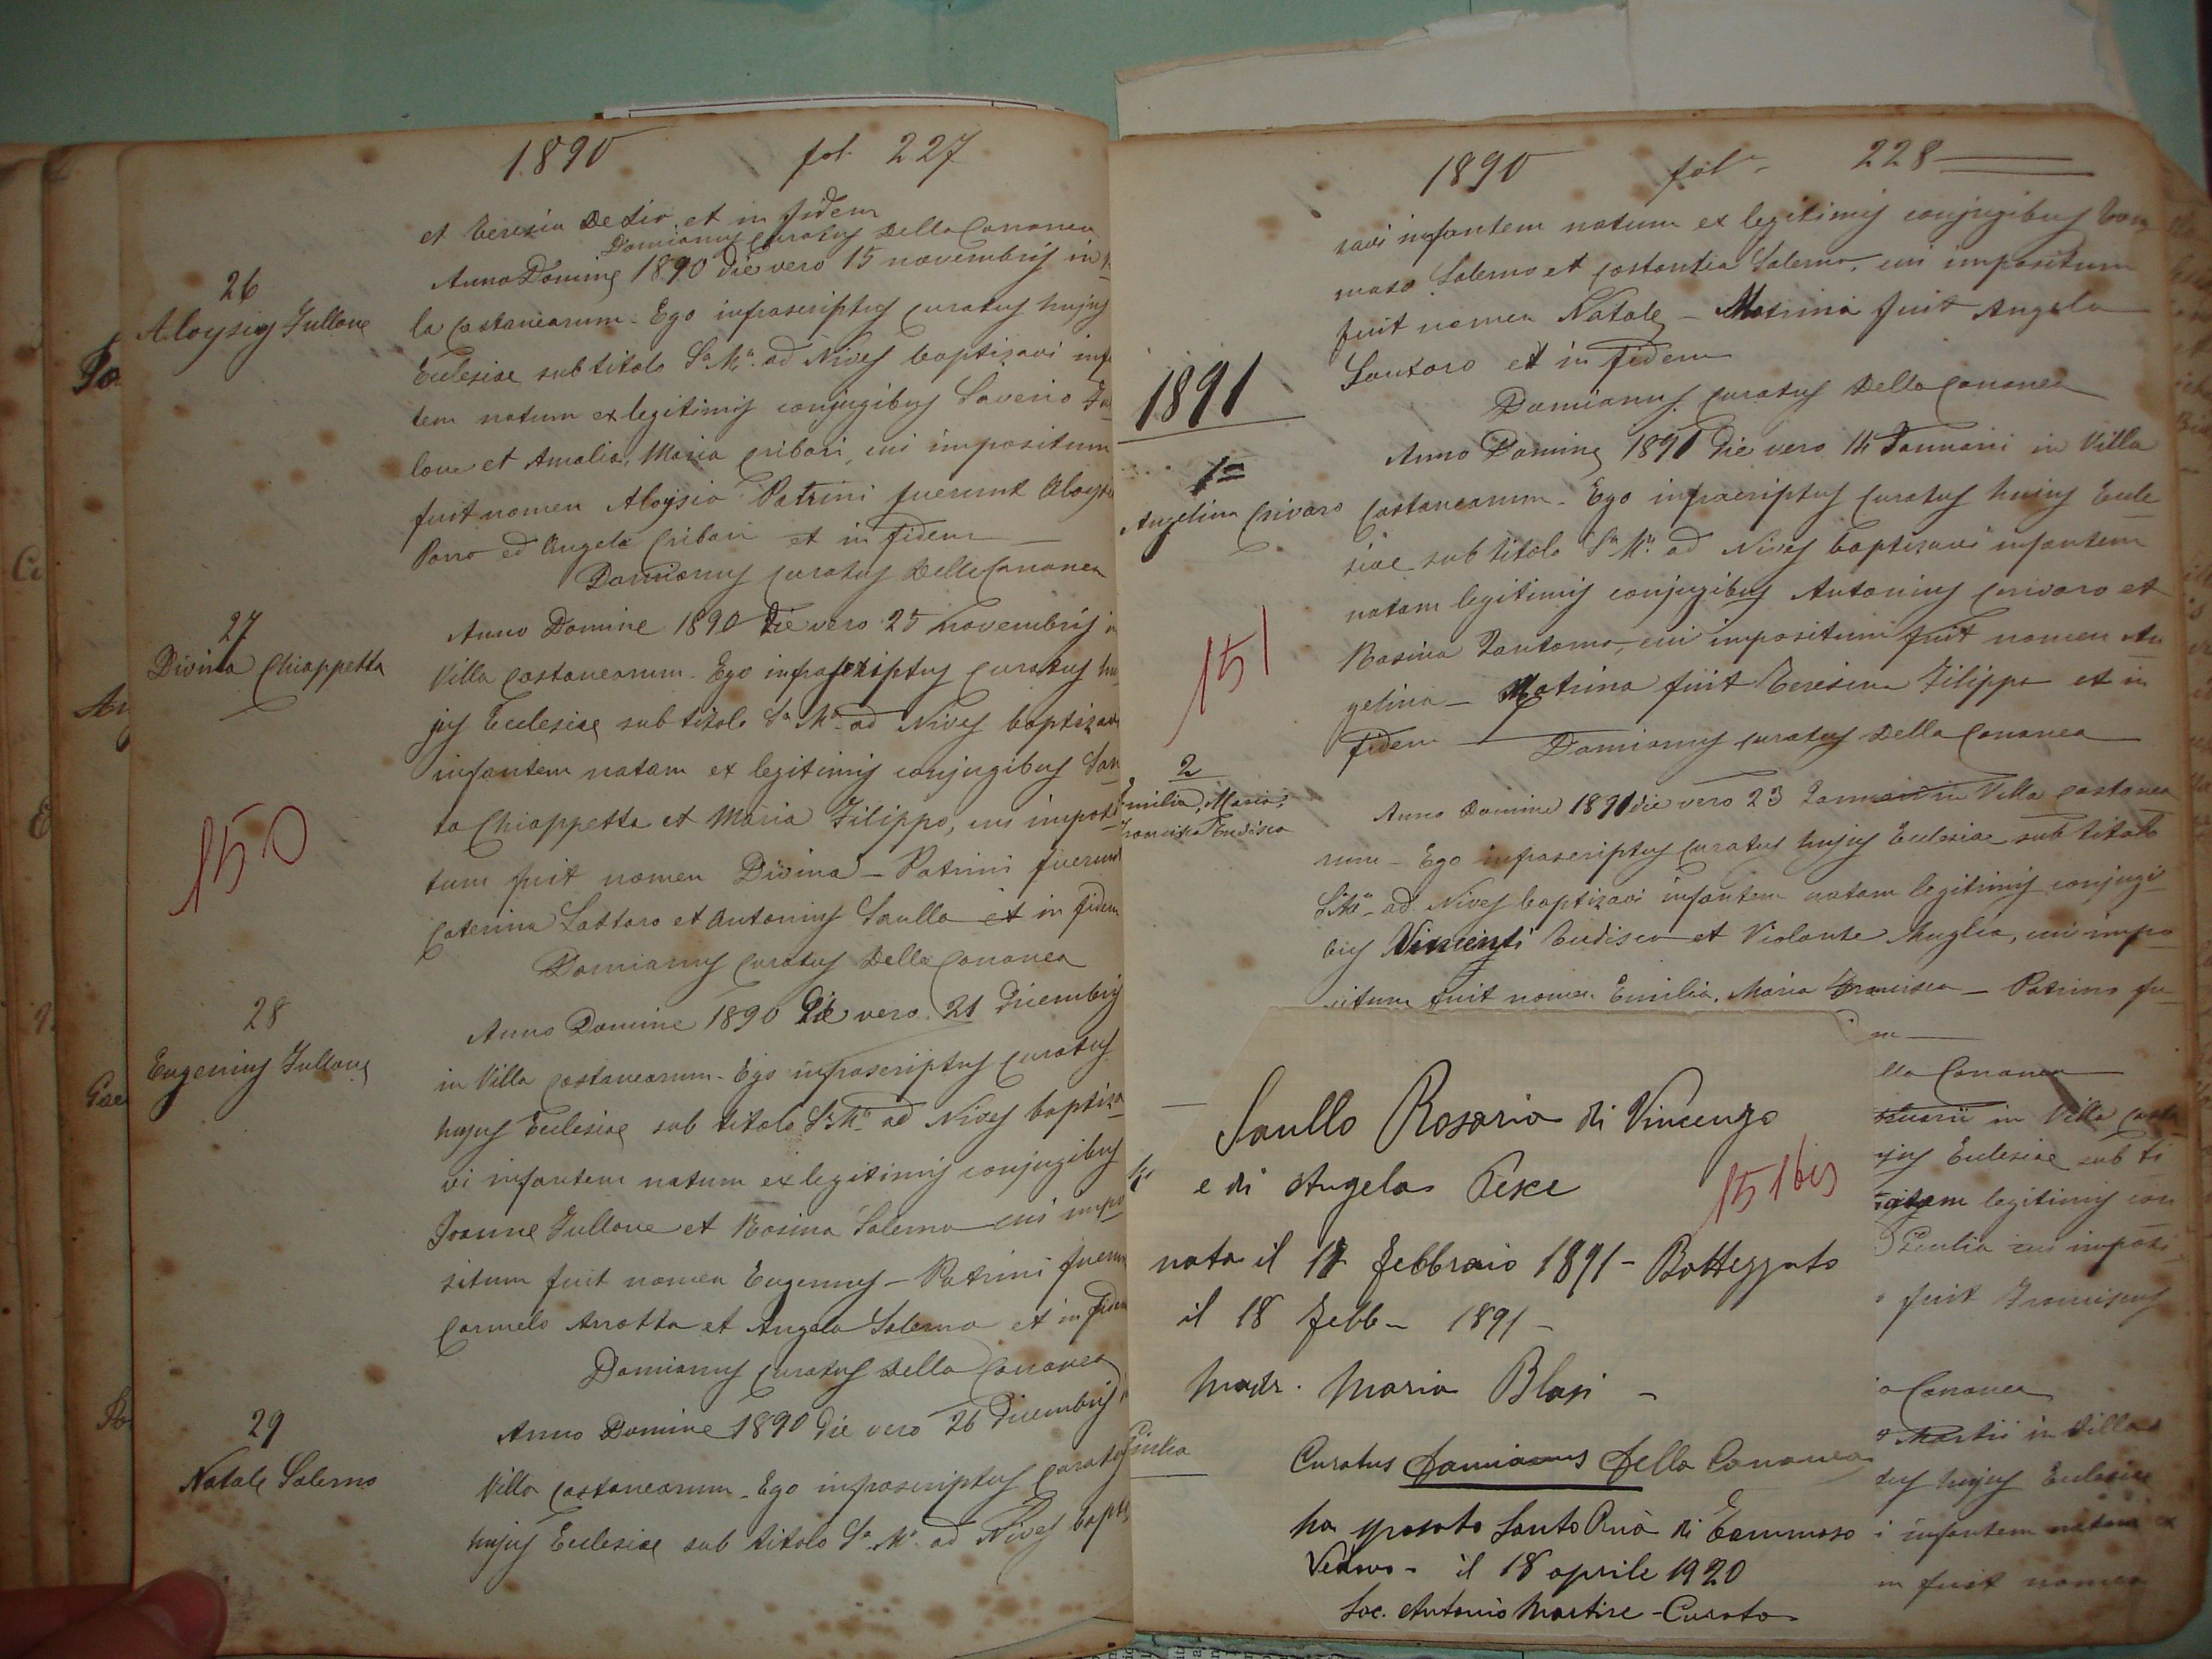 1890 fol. 227
et Teresia De Sio et in fidem
Damianus Curatus Della Cananea
26
Aloysius Fullone
Anno Domine 1890 die vero 15 novembris in
la Castanearum. Ego infrascriptus Curatus hujus
Ecclesiae sub titolo Sa Ma ad Nives baptizavi inf
tem natum ex legitimis conjugibus Saverio Ful
lone et Amalia, Maria Cribari, cui impositum
fuit nomen Aloysio Patrini fuerunt Aloys
Porro ed Angela Cribari et in fidem
Damianus Curatus Della Cananea
27
Divina Chiappetta
Anno Domine 1890 die vero 25 novembris in
Villa Castanearum. Ego infrascriptus Curatus hu
jus Ecclesiae sub titolo Sa Ma ad Nives baptizavi
infantem natam ex legitimis conjugibus San
to Chiappetta et Maria Filippo, cui imposi
tum fuit nomen Divina - Patrini fuerunt
Caterina Lattaro et Antonius Saullo et in fidem
Damianus Curatus Della Cananea
150
28
Eugenius Fullone
Anno Domine 1890 die vero 21 Dicembris
in Villa Castanearum. Ego infrascriptus Curatus
hujus Ecclesiae sub titolo Sa Ma ad Nives baptiza
vi infantem natum ex legitimis conjugibus
Joanne Fullone et Rosina Salerno cui impo
situm fuit nomen Eugenius - Patrini fuerun
Carmelo Arrotta et Angela Salerno et in fidem
Damianus Curatus Della Cananea
29
Natale Salerno
Anno Domine 1890 die vero 26 Dicembris
Villa Castanearum. Ego infrascriptus Curatus
hujus Ecclesiae sub titolo Sa Ma ad Nives bapti
1890 fol 228
zavi infantem natum ex legitimis conjugibus Tom
maso Salerno et Costantia Salerno, cui impositum
fuit nomen Natale - Matrina fuit Angela
Santoro et in fidem
Damianus Curatus Della Cananea
1891
1=
Angelina Crivaro
Anno Domine 1891 die vero 14 Januarii in Villa
Castanearum. Ego infrascriptus Curatus hujus Eccle
siae sub titolo Sa Ma ad Nives baptizavi infantem
natam legitimis conjugibus Antonius Crivaro et
Rosina Iantorno, cui impositum fuit nomen An
gelina - Matrina fuit Teresina Filippo et in
fidem Damianus Curatus Della Cananea
151
2
Emilia, Maria,
Francisca Tudisco
Anno Domine 1891 die vero 23 Januarii in Villa Castanea
rum - Ego infrascriptus Curatus hujus Ecclesiae sub titolo
S. Ma ad Nives baptizavi infantem natam legitimis conjugi
bus Vincenti Tudisco et Violante Muglia, cui impo
situm fuit nomen Emilia, Maria Francisca - Patrino fu
m
lla Cananea
in Villa Casta
jus Ecclesiae sub ti
natam legitimis con
cui imposi
fuit Franciscus
a Cananea
Martii in Villa
tus hujus Ecclesiae
i infantem natam ex
m fuit nomen
Giulia
Saullo Rosaria di Vincenzo
e di Angela Pesce
151 bis
nata il 17 febbraio 1891 - Battezzata
il 18 febb - 1891 -
Madr. Maria Blasi -
Curatus Damianus Della Cananea
ha sposato Santo Ruà di Tommaso
Vedovo - il 18 aprile 1920
Sac. Antonio Martire - Curato